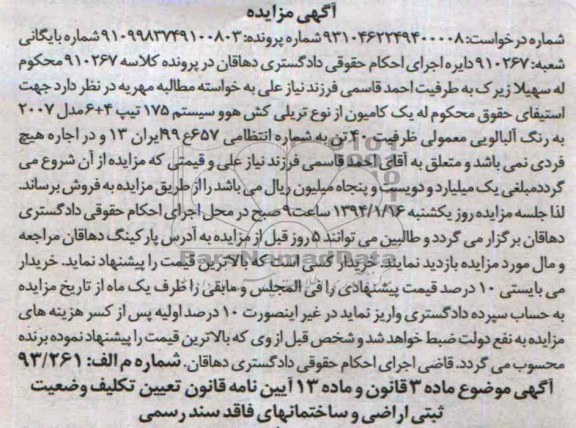 آگهی مزایده
شماره درخواست: ۹۳۱۰۴۶۲۲۴۹۴۰۰۰۰۸ شماره پرونده: ۹۱۰۹۹۸۳۷۴۹۱۰۰۸۰۳ شماره بایگانی
شعبه: ۹۱۰۲۶۷ دایره اجرای احکام حقوقی دادگستری دهاقان در پرونده کلاسه ۹۱۰۲۶۷ محکوم
له سهیلا زیرک به طرفیت احمد قاسمی فرزند نیاز علی به خواسته مطالبه مهریه در نظر دارد جهت
استیفای حقوق محکوم له یک کامیون از نوع تریلی کش هوو سیستم ۱۷۵ تیپ ۴+۶ مدل ۲۰۰۷
به رنگ آلبالویی معمولی ظرفیت ۴۰ تن به شماره انتظامی ۶۵۷ع۹۹ ایران ۱۳ و در اجاره هیچ
فردی نمی باشد و متعلق به آقای احمد قاسمی فرزند نیاز علی و قیمتی که مزایده از آن شروع می
گردد مبلغی یک میلیارد و دویست و پنجاه میلیون ریال می باشد را از طریق مزایده به فروش برساند.
لذا جلسه مزایده روز یکشنبه ۱۳۹۴/۱/۱۶ ساعت ۹ صبح در محل اجرای احکام حقوقی دادگستری
دهاقان برگزار می گردد و طالبین می توانند ۵ روز قبل از مزایده به آدرس پارکینگ دهاقان مراجعه
و مال مورد مزایده بازدید نمایند. خریدار کسی است که بالاترین قیمت را پیشنهاد نماید. خریدار
می بایستی ۱۰ درصد قیمت پیشنهادی را فی المجلس و مابقی را ظرف یک ماه از تاریخ مزایده
به حساب سپرده دادگستری واریز نماید در غیر اینصورت ۱۰ درصد اولیه پس از کسر هزینه های
مزایده به نفع دولت ضبط خواهد شد و شخص قبل از وی که بالاترین قیمت را پیشنهاد نموده برنده
محسوب می گردد. قاضی اجرای احکام حقوقی دادگستری دهاقان. شماره م الف: ۹۳/۲۶۱
آگهی موضوع ماده ۳ قانون و ماده ۱۳ آیین نامه قانون تعیین تکلیف وضعیت
ثبتی اراضی و ساختمانهای فاقد سند رسمی